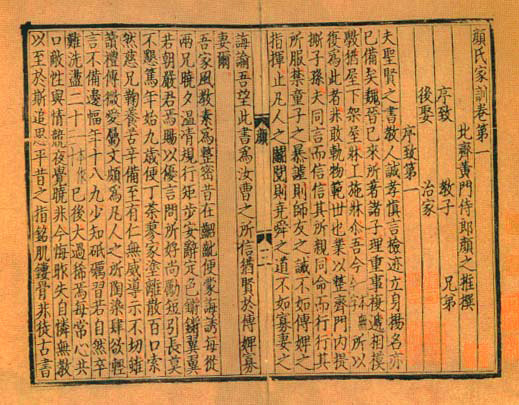 顔氏家訓卷第一
北齊黃門侍郎顔之推撰
序致 教子 兄弟
後娶 治家
序致第一
夫聖賢之書教人誠孝慎言檢迹立身揚名亦
已備矣魏晉已來所著諸子理重事複遞相模
斆猶屋下架屋牀上施牀尒吾今 所以
復為此者非敢軌物範世也業以整齊門内提
撕子孫夫同言而信信其所親同命而行行其
所服禁童子之暴謔則師友之誡不如傅婢之
指揮止凡人之鬭鬩則堯舜之道不如寡妻之
誨諭吾望此書為汝曹之所信猶賢於傅婢寡
妻爾
顔一
二
吾家風教素為整密昔在齠齔便蒙誨誘每從
兩兄曉夕溫凊規行矩步安辭定色鏘鏘翼翼
若朝嚴君焉賜以優言問所好尚勵短引長莫
不懇篤年始九歲便丁荼蓼家塗離散百口索
然慈兄鞠養苦辛備至有仁無威導示不切雖
讀禮傳微愛屬文頗為凡人之所陶染肆欲輕
言不備邊幅年十八九少知砥礪習若自然卒
難洗盪二十 已後大過稀焉每常心共
口敵性與情競夜覺曉非今悔昨失自憐無教
以至於斯追思平昔之指銘肌鏤骨非徒古書